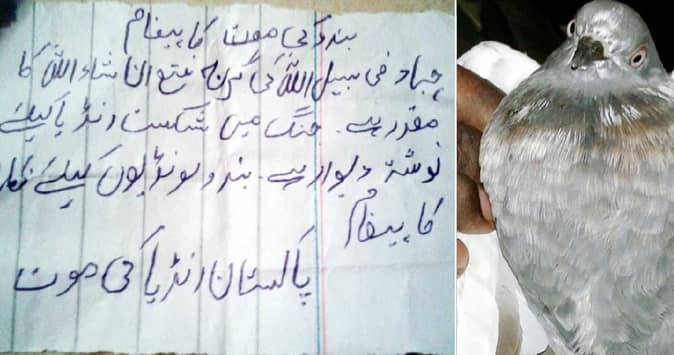 ہندو کی موت کا پیغام
جہاد فی سبیل اللہ کی فتح ان شاء اللہ کا
مقدر ہے۔ جنگ میں شکست انڈیا کیلئے
نوشتہ دیوار ہے۔ ہندو لونڈیوں کیلئے
کا پیغام
پاکستان انڈیا کی موت